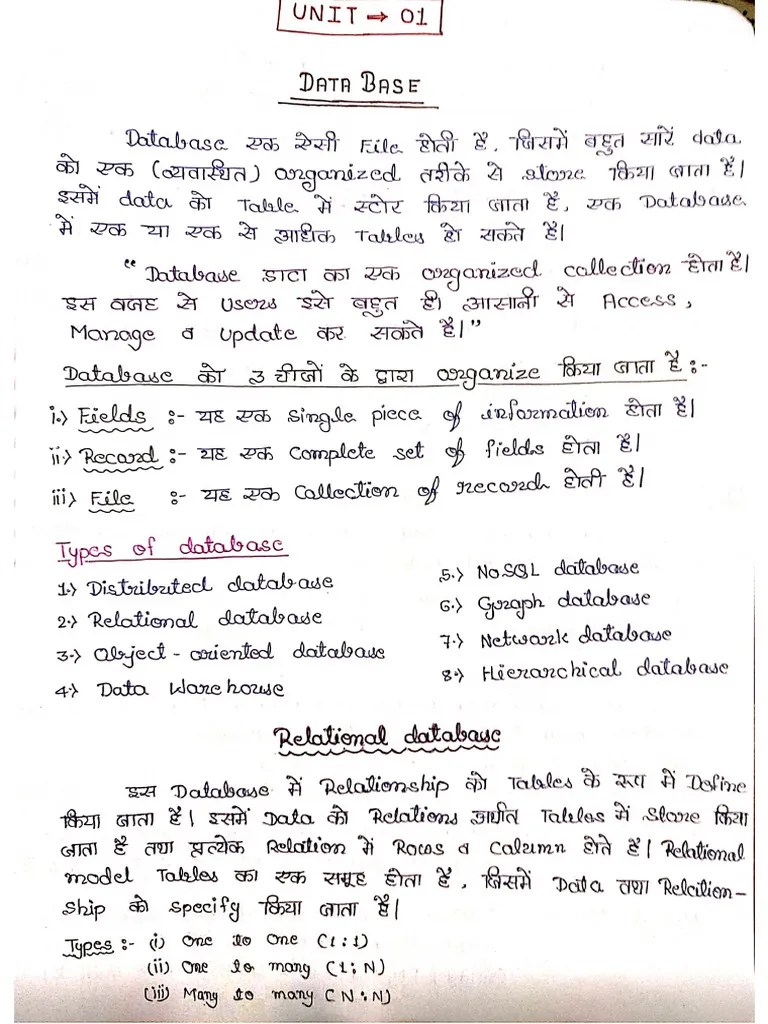 UNIT → 01
DATA BASE
Database एक ऐसी File होती है, जिसमें बहुत सारें data
को एक (व्यवास्थित) organized तरीके से store किया जाता है।
इसमें data को Table में स्टोर किया जाता है, एक Database
में एक या एक से आधिक Tables हो सकते है।
"Database डाटा का एक organized collection होता है।
इस वजह से Users इसे बहुत ही आसानी से Access,
Manage व Update कर सकते है।"
Database को 3 चीजों के द्वारा organize किया जाता है :-
i.) Fields :- यह एक single piece of information होता है।
ii) Record :- यह एक Complete set of fields होता है।
iii) File :- यह एक Collection of records होती है।
Types of database
1.) Distributed database
2.) Relational database
3.) Object - oriented database
4.) Data Warehouse
5.) NoSQL database
6.) Graph database
7.) Network database
8.) Hierarchical database
Relational database
इस Database में Relationship को Tables के रूप में Define
किया जाता है। इसमें Data को Relations अर्थात Tables में Store किया
जाता है तथा प्रत्येक Relation में Rows व Column होते है। Relational
model Tables का एक समूह होता है, जिसमें Data तथा Relation-
ship को specify किया जाता है।
Types :- (i) One to One (1:1)
(ii) One to many (1:N)
(iii) Many to many (N:N)